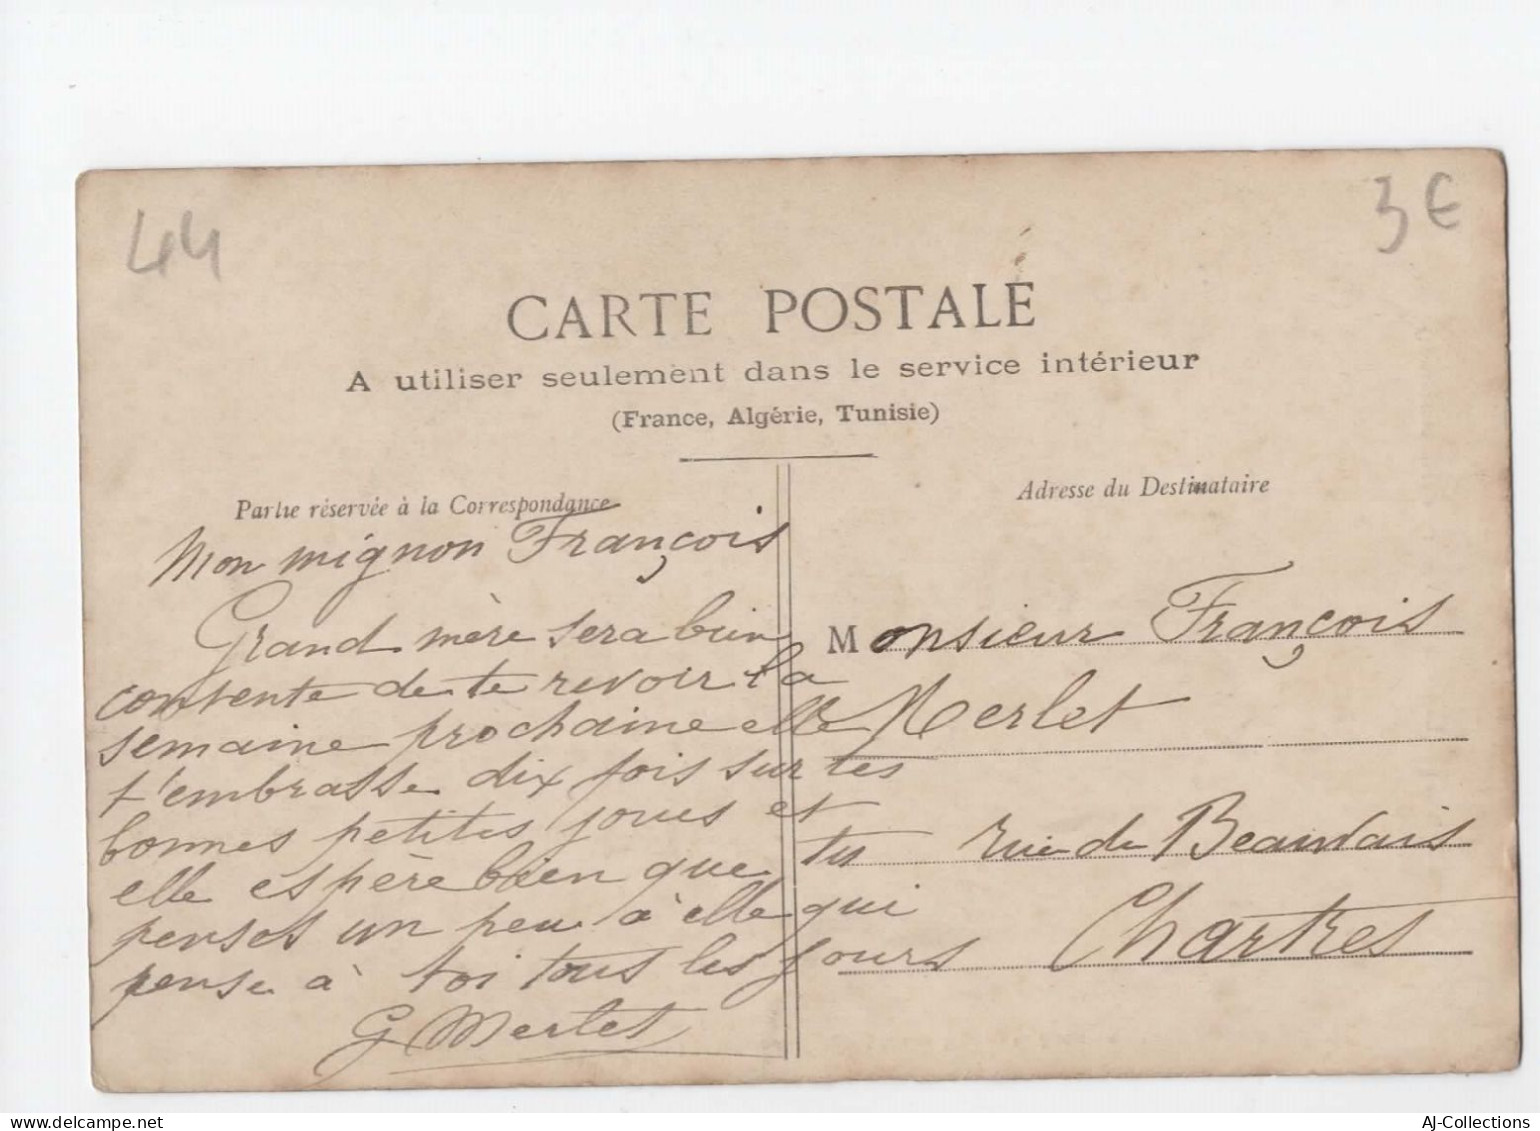 44
3€
CARTE POSTALE
A utiliser seulement dans le service intérieur
(France, Algérie, Tunisie)
Partie réservée à la Correspondance
Mon mignon François
Grand mère sera bien
contente de te revoir la
semaine prochaine elle
t'embrasse dix fois sur tes
bonnes petites joues et
elle espère bien que tu
penses un peu à elle qui
pense à toi tous les jours
G Merlet
Adresse du Destinataire
Monsieur François
Merlet
rue de Beauvais
Chartres
AJ-Collections